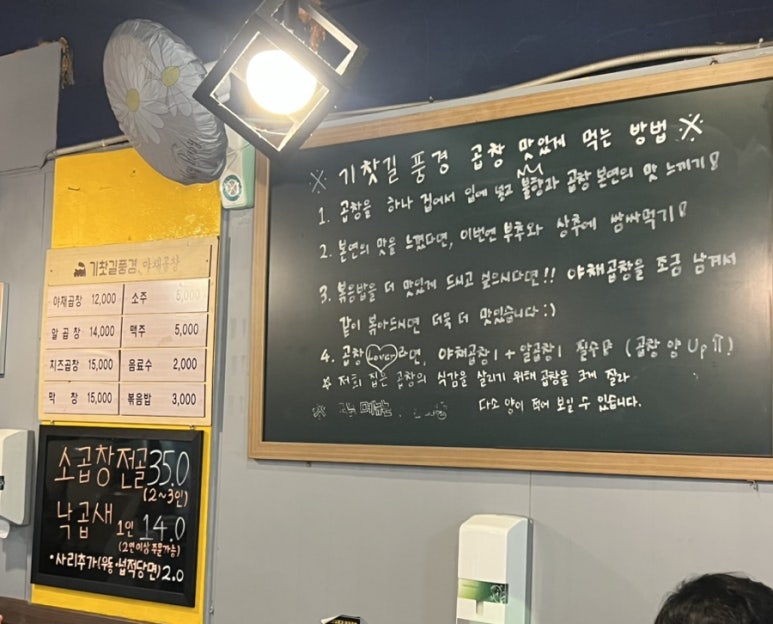 ※ 기찻길 풍경 곱창 맛있게 먹는 방법 ※
1. 곱창을 하나 겁에서 입에 넣고 불향과 곱창 본연의 맛 느끼기!
2. 본연의 맛을 느꼈다면, 이번엔 부추와 상추에 쌈싸먹기!
3. 볶음밥을 더 맛있게 드시고 싶으시다면!! 야채곱창을 조금 남겨서
같이 볶아드시면 더욱 더 맛있습니다:)
4. 곱창 Lover라면, 야채곱창1 + 알곱창1 필수 (곱창 양 Up⇈!)
☆ 저희 집은 곱창의 식감을 살리기 위해 곱창을 크게 잘라
다소 양이 적어 보일 수 있습니다.
※ 메뉴는
기찻길풍경 야채곱창
야채곱창 12,000 소주 5,000
알곱창 14,000 맥주 5,000
치즈곱창 15,000 음료수 2,000
막창 15,000 볶음밥 3,000
소곱창전골 35.0
(2~3인)
낙곱새 1인 14.0
(2인이상 주문가능)
•사리추가(우동·넙적당면) 2.0